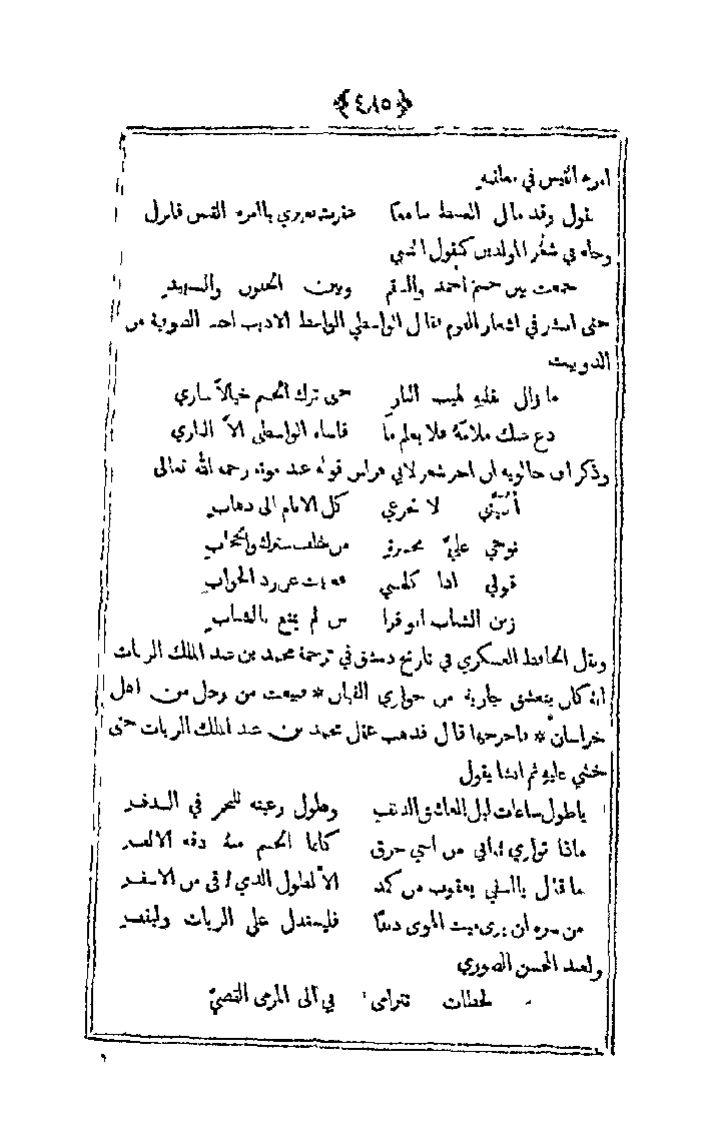 ﴿٤٨٥﴾
امرء القيس في معلقته
تقول وقد مال الغبيط بنا معًا عقرت بعيري ياامرء القيس فانزل
وجاء في شعر المولدين كقول المتنبي
جمعت بين جسم أحمد والسقم وبين الجفون والتسهيد
حتى انتشر في اشعار القوم فقال الواسطي الواعظ الاديب احد الصوفية من
الدوبيت
ما زال عليهِ لهيب النار حتى ترك الجسم خيالاً ساري
دع عنك ملامة فلا يعلم ما قاساه الواسطي الاّ الداري
وذكر ابن خالويه ان اخر شعر لابي فراس قوله عند موته رحمه الله تعالى
أبنيّتي لا تجزعي كل الانام الى ذهابِ
نوحي عليّ بحسرةٍ من خلف سترك والحجابِ
قولي اذا كلمتني فعييت عن رد الجوابِ
زين الشباب ابو فرا س لم يمتع بالشبابِ
ونقل الحافظ العسكري في تاريخ دمشق في ترجمة محمد بن عبد الملك الزيات
انهُ كان يتعشق جارية من جواري القيان * فبيعت من رجل من اهل
خراسان * فاخرجها قال فذهب عقل محمد بن عبد الملك الزيات حتى
خشي عليهِ ثم انشا يقول
ياطول ساعات ليل العاشق الدنف وطول رعيته للنجم في السدف
ماذا تواري ثيابي من اخي حرق كانما الجسم منهُ دقة الالف
ما قال يااسفي يعقوب من كمد الاّ لطول الذي لاقى من الاسف
من سره ان يرى ميت الهوى دنفًا فليستدل على الزيات وليقف
ولعبد المحسن الصوري
لحظات تترامى في الى المرمى القصيّ